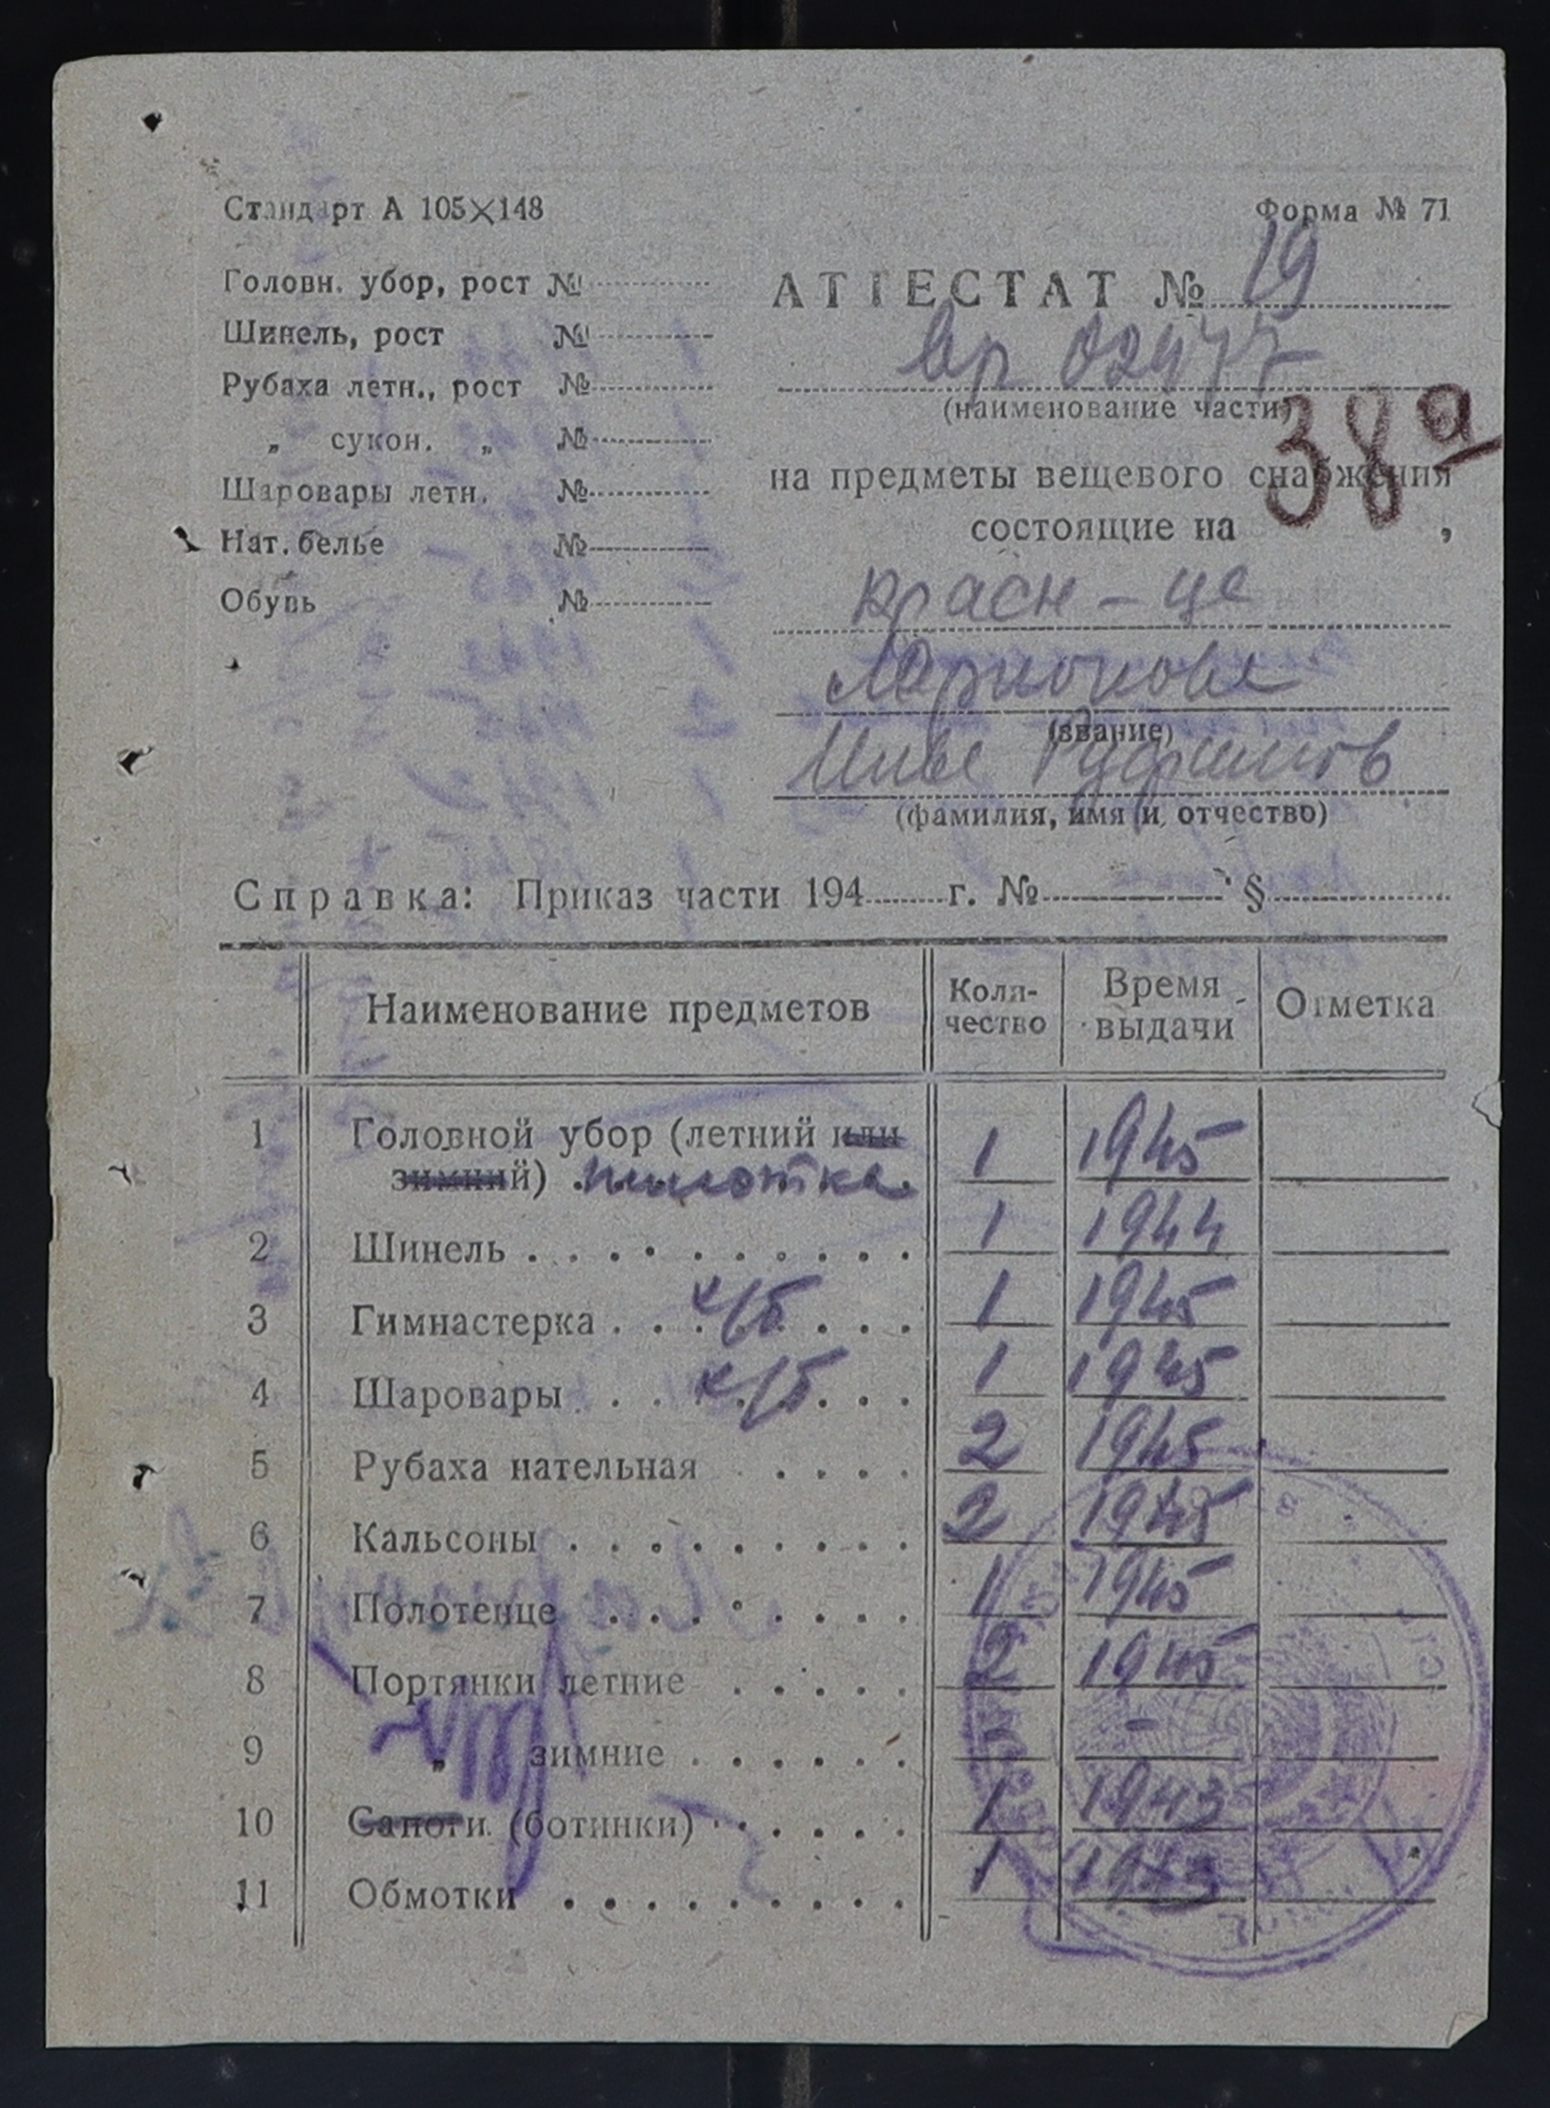 Стандарт А 105×148
Форма № 71
Головн. убор, рост №
Шинель, рост №
Рубаха летн., рост №
„ сукон. „ №
Шаровары летн. №
Нат. белье №
Обувь №
АТТЕСТАТ № 19
02977
(наименование части)
38а
на предметы вещевого снабжения
состоящие на ,
красн-це
Ларионове
(звание)
(фамилия, имя и отчество)
Справка: Приказ части 194 г. № §
Наименование предметов Коли-чество Время выдачи Отметка
1 Головной убор (летний или
зимний) пилотка 1 1945
2 Шинель 1 1944
3 Гимнастерка х/б 1 1945
4 Шаровары х/б 1 1945
5 Рубаха нательная 2 1945
6 Кальсоны 2 1945
7 Полотенце 1 1945
8 Портянки летние 2 1945
9 „ зимние - -
10 Сапоги (ботинки) 1 1943
11 Обмотки 1 1943